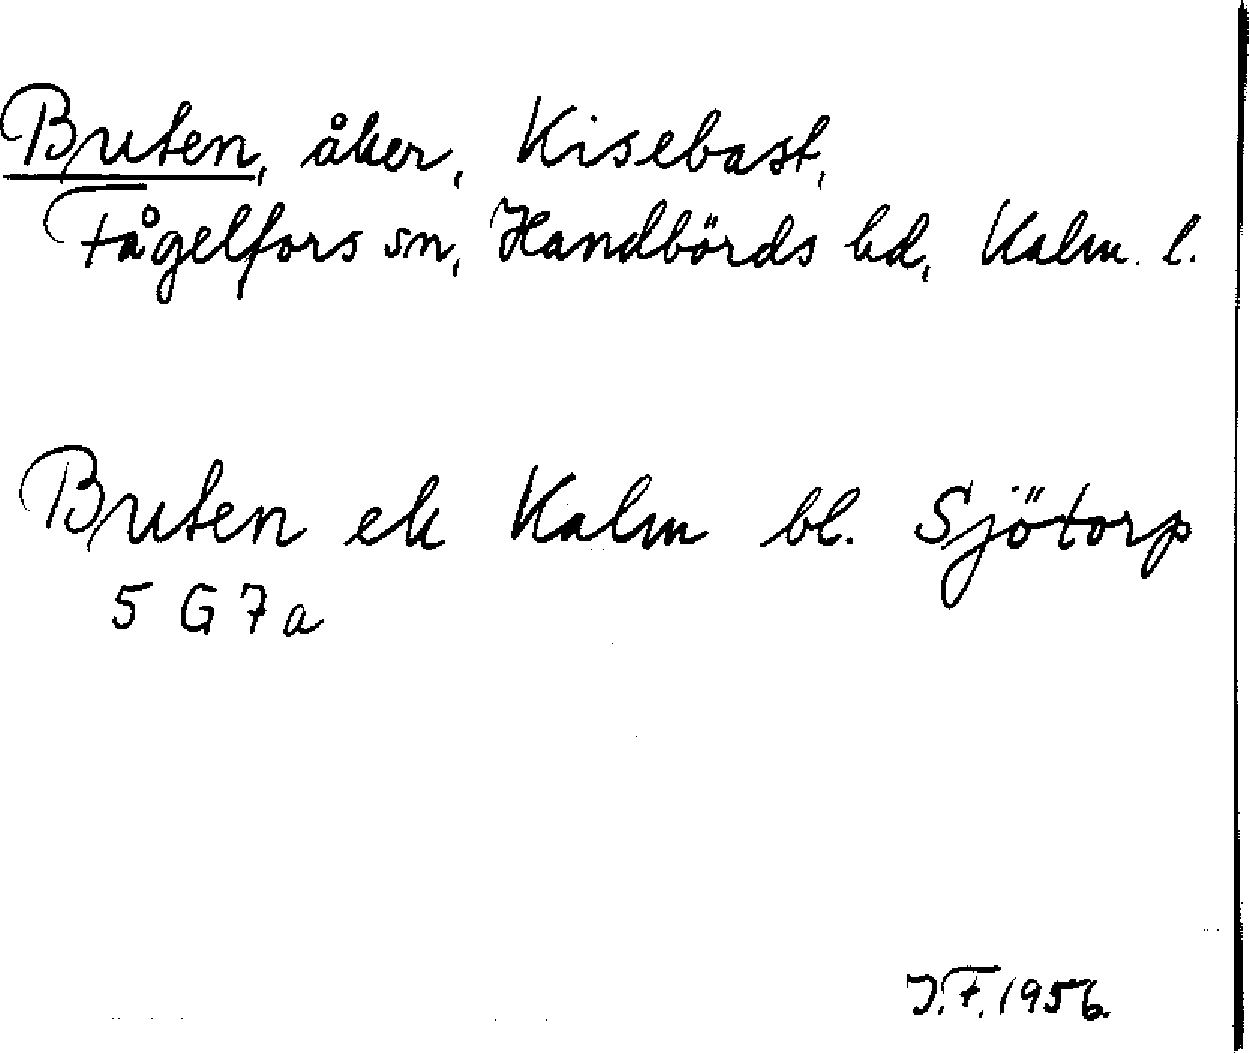 Buten, åker, Kisebast,
Fågelfors sn, Handbörds hd, Kalm. l.
Buten ek Kalm bl. Sjötorp
5 G 7 a
J.F. 1956.